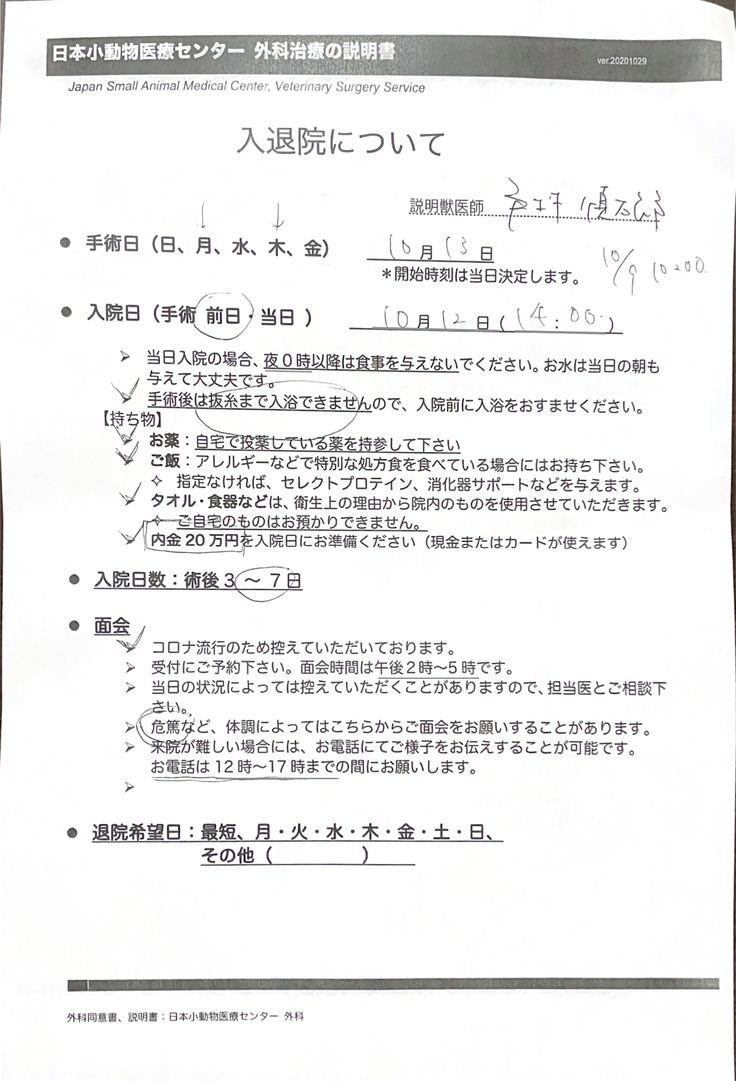 日本小動物医療センター 外科治療の説明書 ver.20201029
Japan Small Animal Medical Center, Veterinary Surgery Service
入退院について
説明獣医師
● 手術日（日、月、水、木、金） 10月13日
＊開始時刻は当日決定します。
10/9 10:00
● 入院日（手術 前日・当日 ） 10月12日（14:00）
➢ 当日入院の場合、夜０時以降は食事を与えないでください。お水は当日の朝も
与えて大丈夫です。
➢ 手術後は抜糸まで入浴できませんので、入院前に入浴をおすませください。
【持ち物】
➢ お薬：自宅で投薬している薬を持参して下さい
➢ ご飯：アレルギーなどで特別な処方食を食べている場合にはお持ち下さい。
✧ 指定なければ、セレクトプロテイン、消化器サポートなどを与えます。
➢ タオル・食器などは、衛生上の理由から院内のものを使用させていただきます。
✧ ご自宅のものはお預かりできません。
➢ 内金 20 万円を入院日にお準備ください（現金またはカードが使えます）
● 入院日数：術後３～７日
● 面会
➢ コロナ流行のため控えていただいております。
➢ 受付にご予約下さい。面会時間は午後２時～５時です。
➢ 当日の状況によっては控えていただくことがありますので、担当医とご相談下
さい。
➢ 危篤など、体調によってはこちらからご面会をお願いすることがあります。
➢ 来院が難しい場合には、お電話にてご様子をお伝えすることが可能です。
お電話は 12 時～17 時までの間にお願いします。
➢
● 退院希望日：最短、月・火・水・木・金・土・日、
その他（　　　　　　）
外科同意書、説明書：日本小動物医療センター 外科